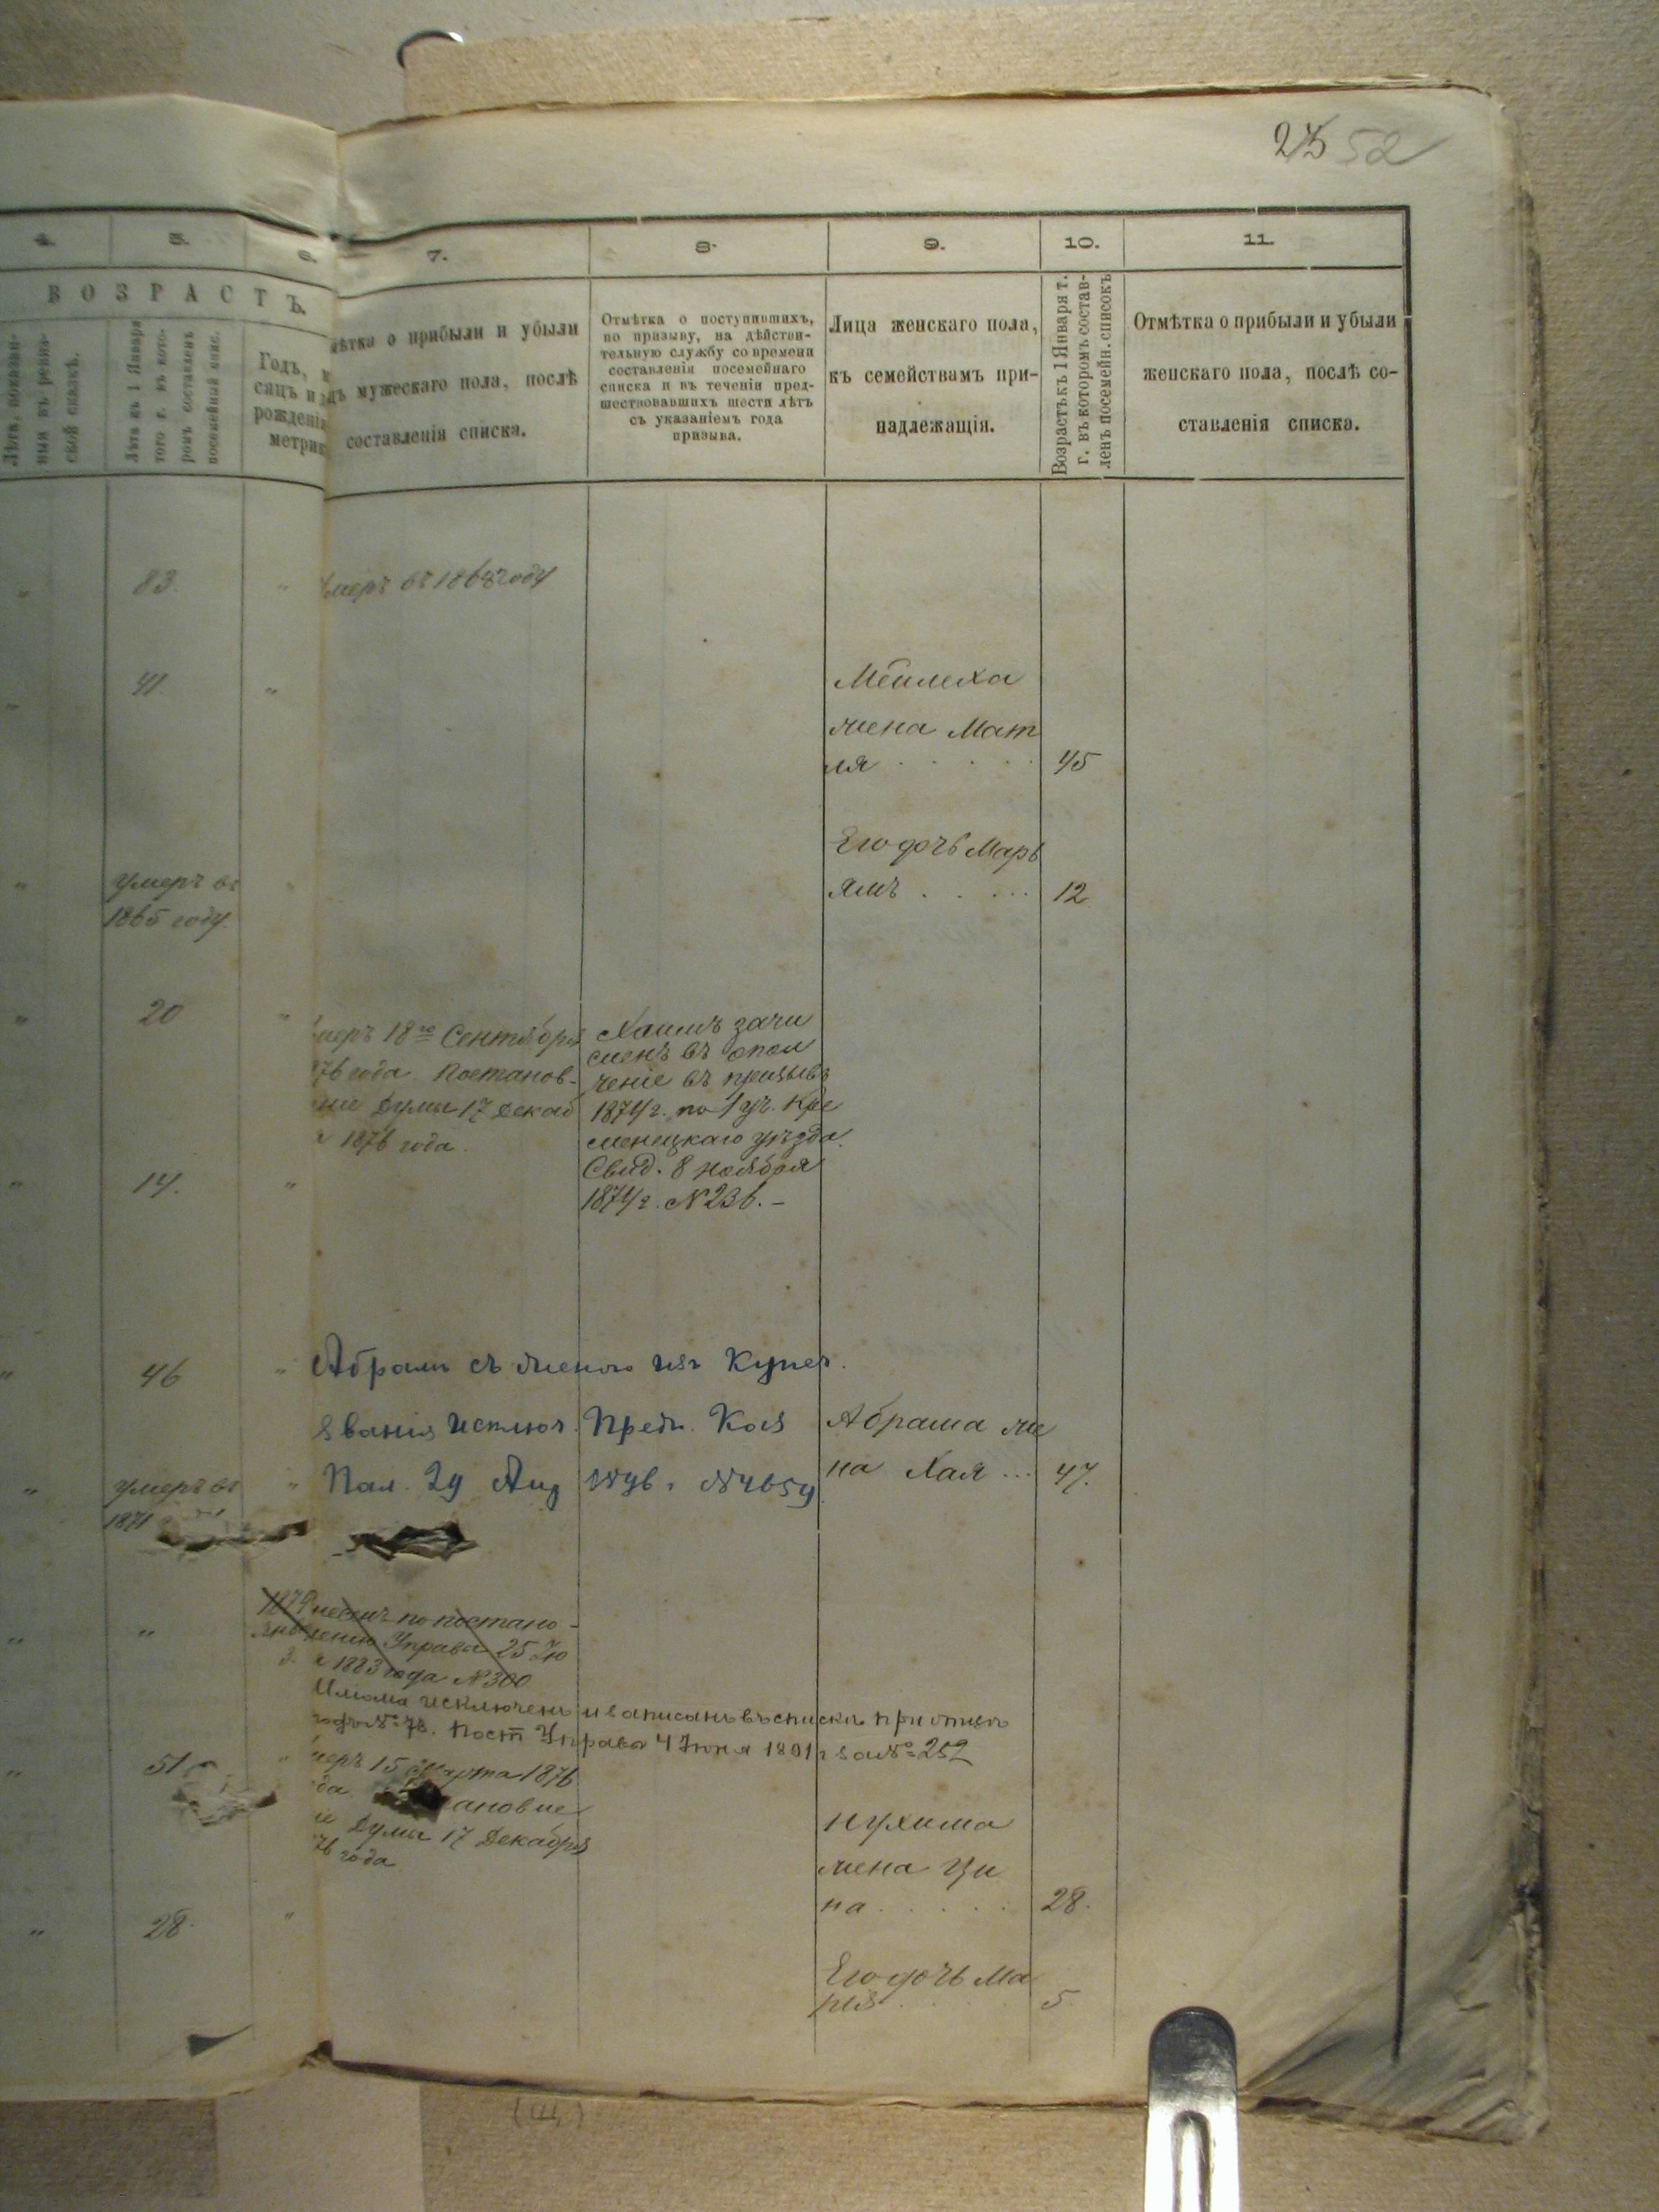 25 52
4. 5. 6. 7. 8. 9. 10. 11.
ВОЗРАСТЪ.
Лѣта, показан-
ныя въ ревиз-
ской сказкѣ.
Лѣта къ 1 Января
того г. въ кото-
ромъ составленъ
посемейный спис.
Годъ,
сяцъ и
рожденія
метрик
ѣтка о прибыли и убыли
цъ мужескаго пола, послѣ
составленія списка.
Отмѣтка о поступившихъ,
по призыву, на дѣйстви-
тельную службу со времени
составленія посемейнаго
списка и въ теченіи пред-
шествовавшихъ шести лѣтъ
съ указаніемъ года
призыва.
Лица женскаго пола,
къ семействамъ при-
надлежащія.
Возрастъ къ 1 Января т.
г. въ которомъ состав-
ленъ посемейн. списокъ
Отмѣтка о прибыли и убыли
женскаго пола, послѣ со-
ставленія списка.
83.
меръ въ 1868 году
41
Мейлеха
жена Мат
ля . . . . . 45
умеръ въ
1865 году.
Его дочь Марь
ямъ . . . . . 12
20
меръ 18го Сентября
76 года Постанов-
ніе Думы 17 Декаб
я 1876 года.
Хаимъ зачи
сленъ въ опол
ченіе въ призывъ
1874 г. по 1 уч. Кре
менецкаго уѣзда.
Свид. 8 Ноября
1874 г. № 236. –
14.
46
Абрамъ съ женою изъ Купеч.
званія исключ. Предп. Каз
Пал. 29 Авг 1896 г. № 4659
Абрама же
на Хая ... 47.
умеръ въ
1871
1879
несенъ по постано-
вленію Управы 25 Ію
я 1883 года № 300
исключенъ и записанъ въ списокъ при отцѣ
подъ № 78. Пост Управы 4 Іюня 1891 г за № 252
51
меръ 15 Марта 1876
да. ановле
е Думы 17 Декабря
76 года
Нухима
жена Ци
на . . . . . 28.
28.
Его дочь Ма
рія . . . . 5